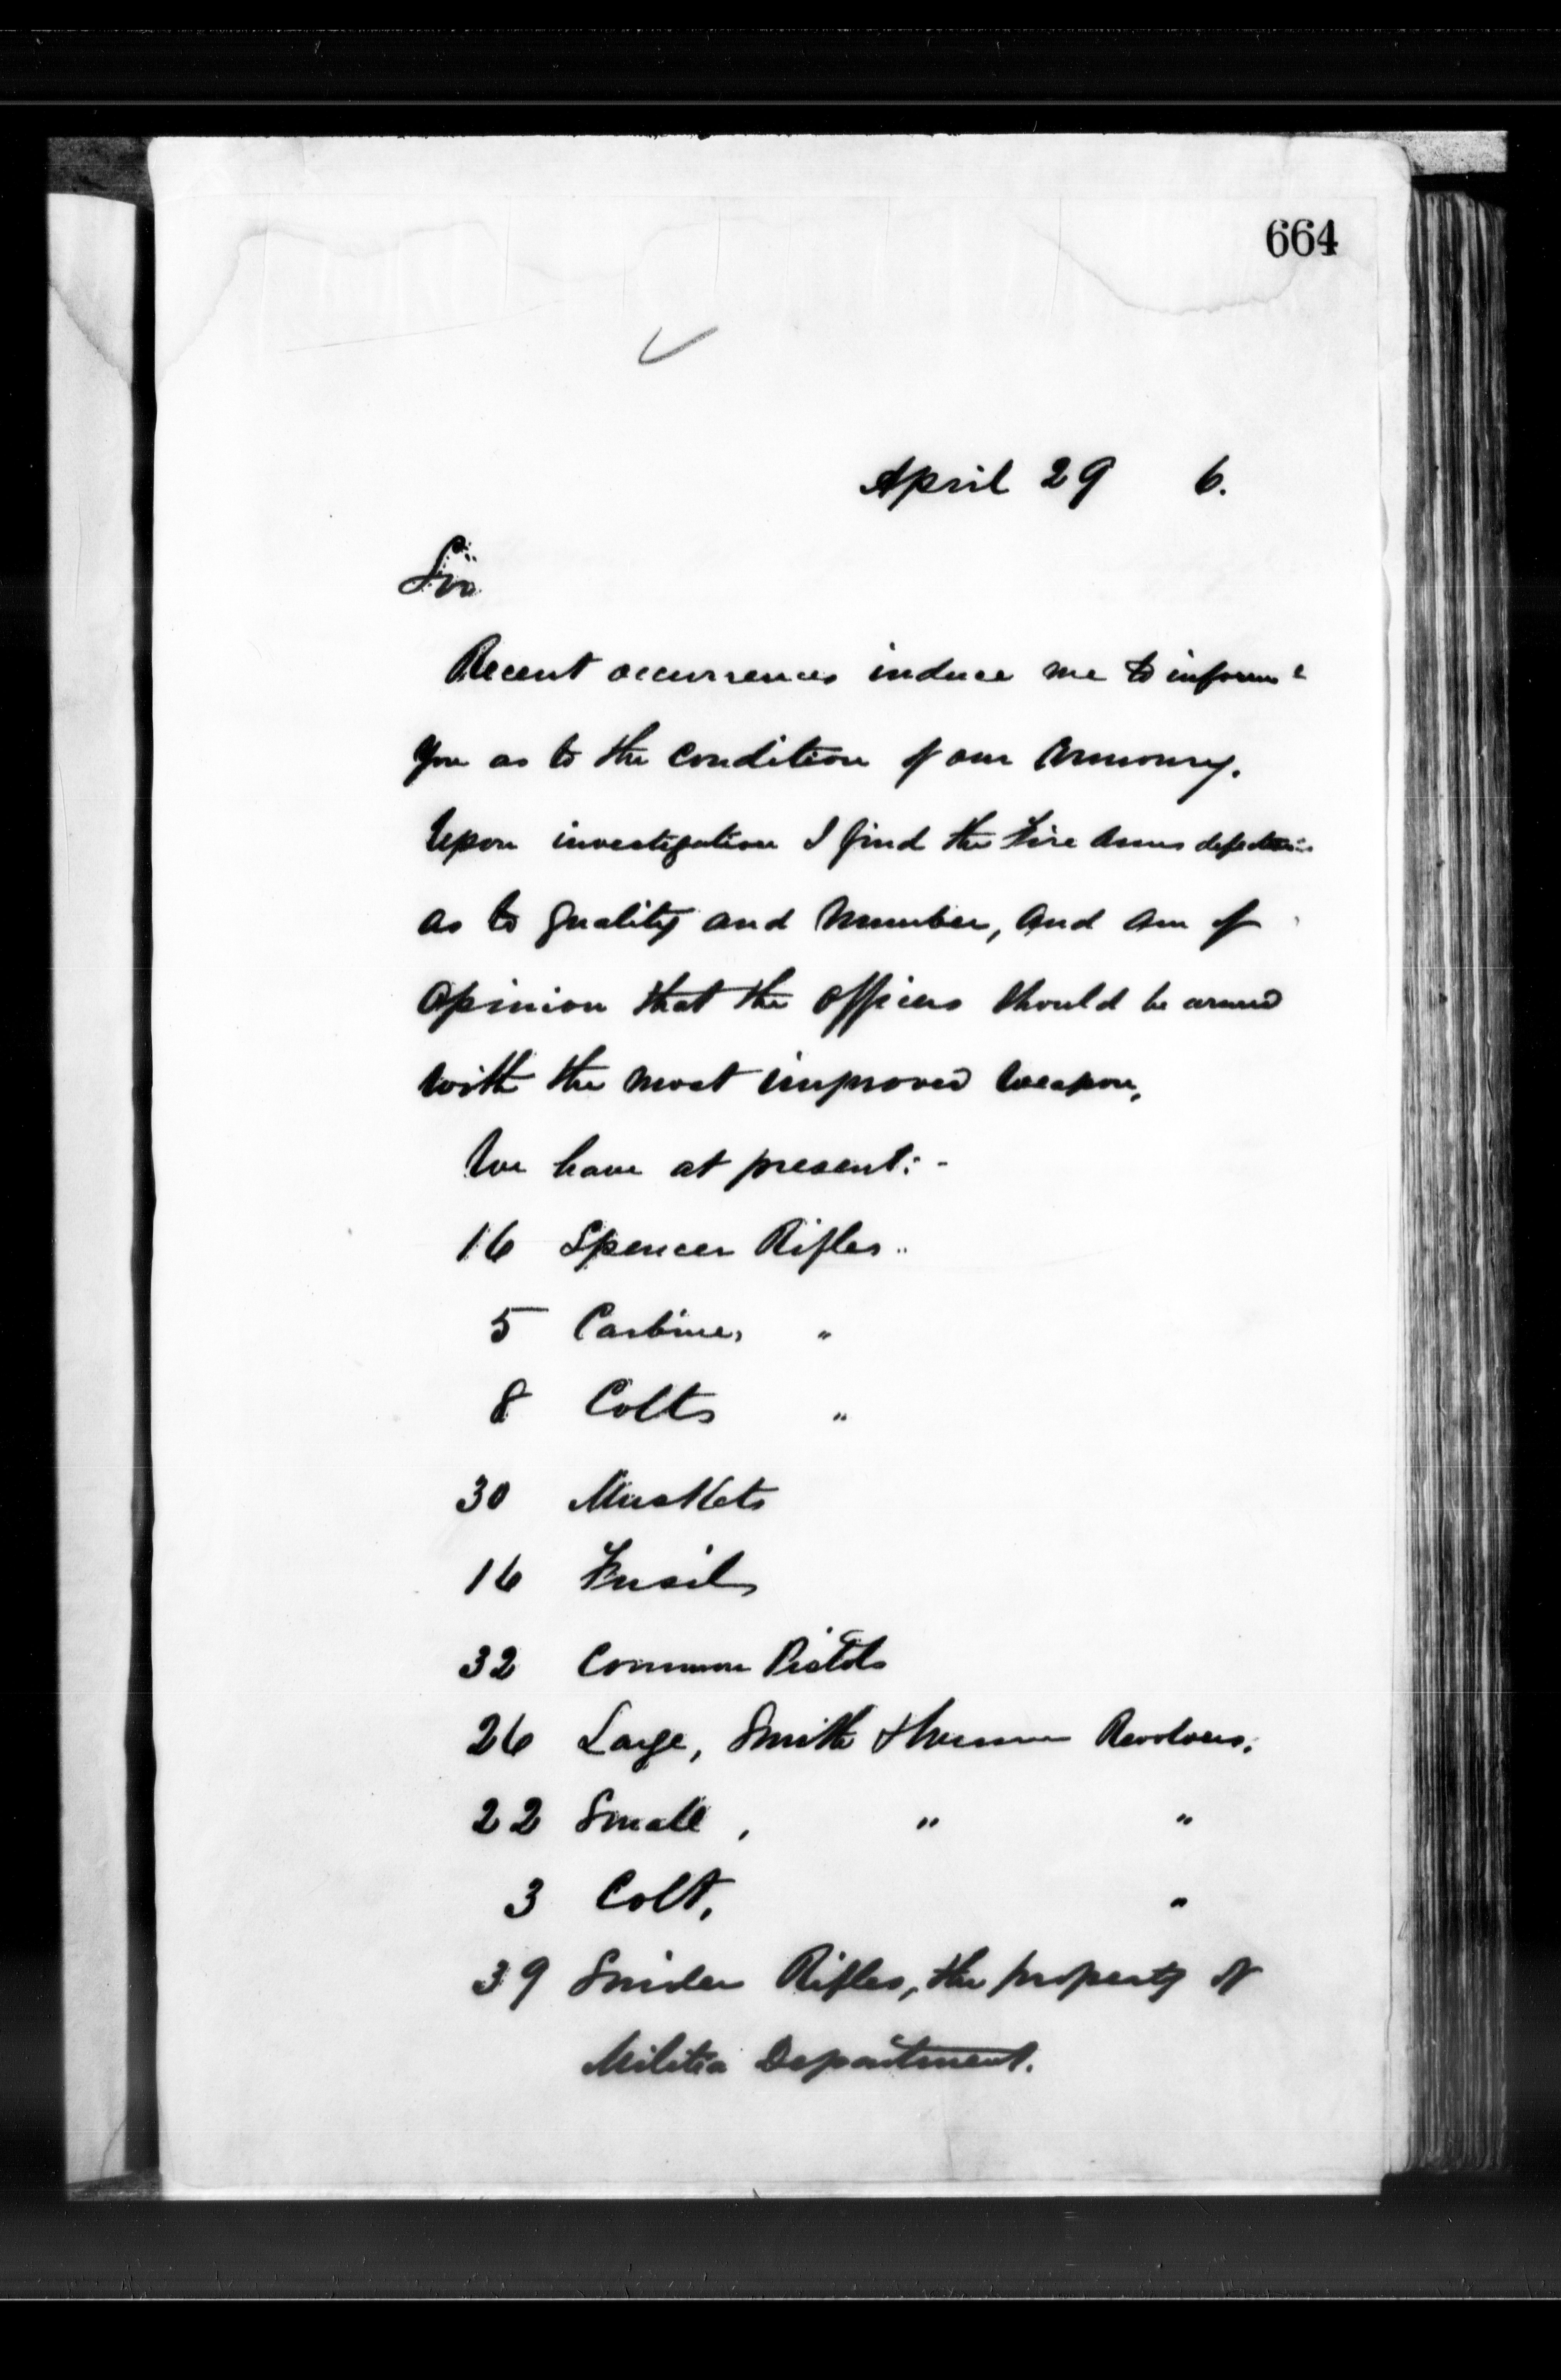 664
April 29 6.
Sir
Recent occurrences induce me to inform
you as to the condition of our Armoury.
Upon investigation I find the Fire Arms defective
as to quality and number, and am of
opinion that the Officers should be armed
with the most improved weapon,
We have at present:-
16 Spencer Rifles
5 Carbines "
8 Colts "
30 Muskets
16 Fusils
32 Common Pistols
26 Large, Smith & Revolvers.
22 Small, " "
3 Colt, "
39 Snider Rifles, the property of
Militia Department.